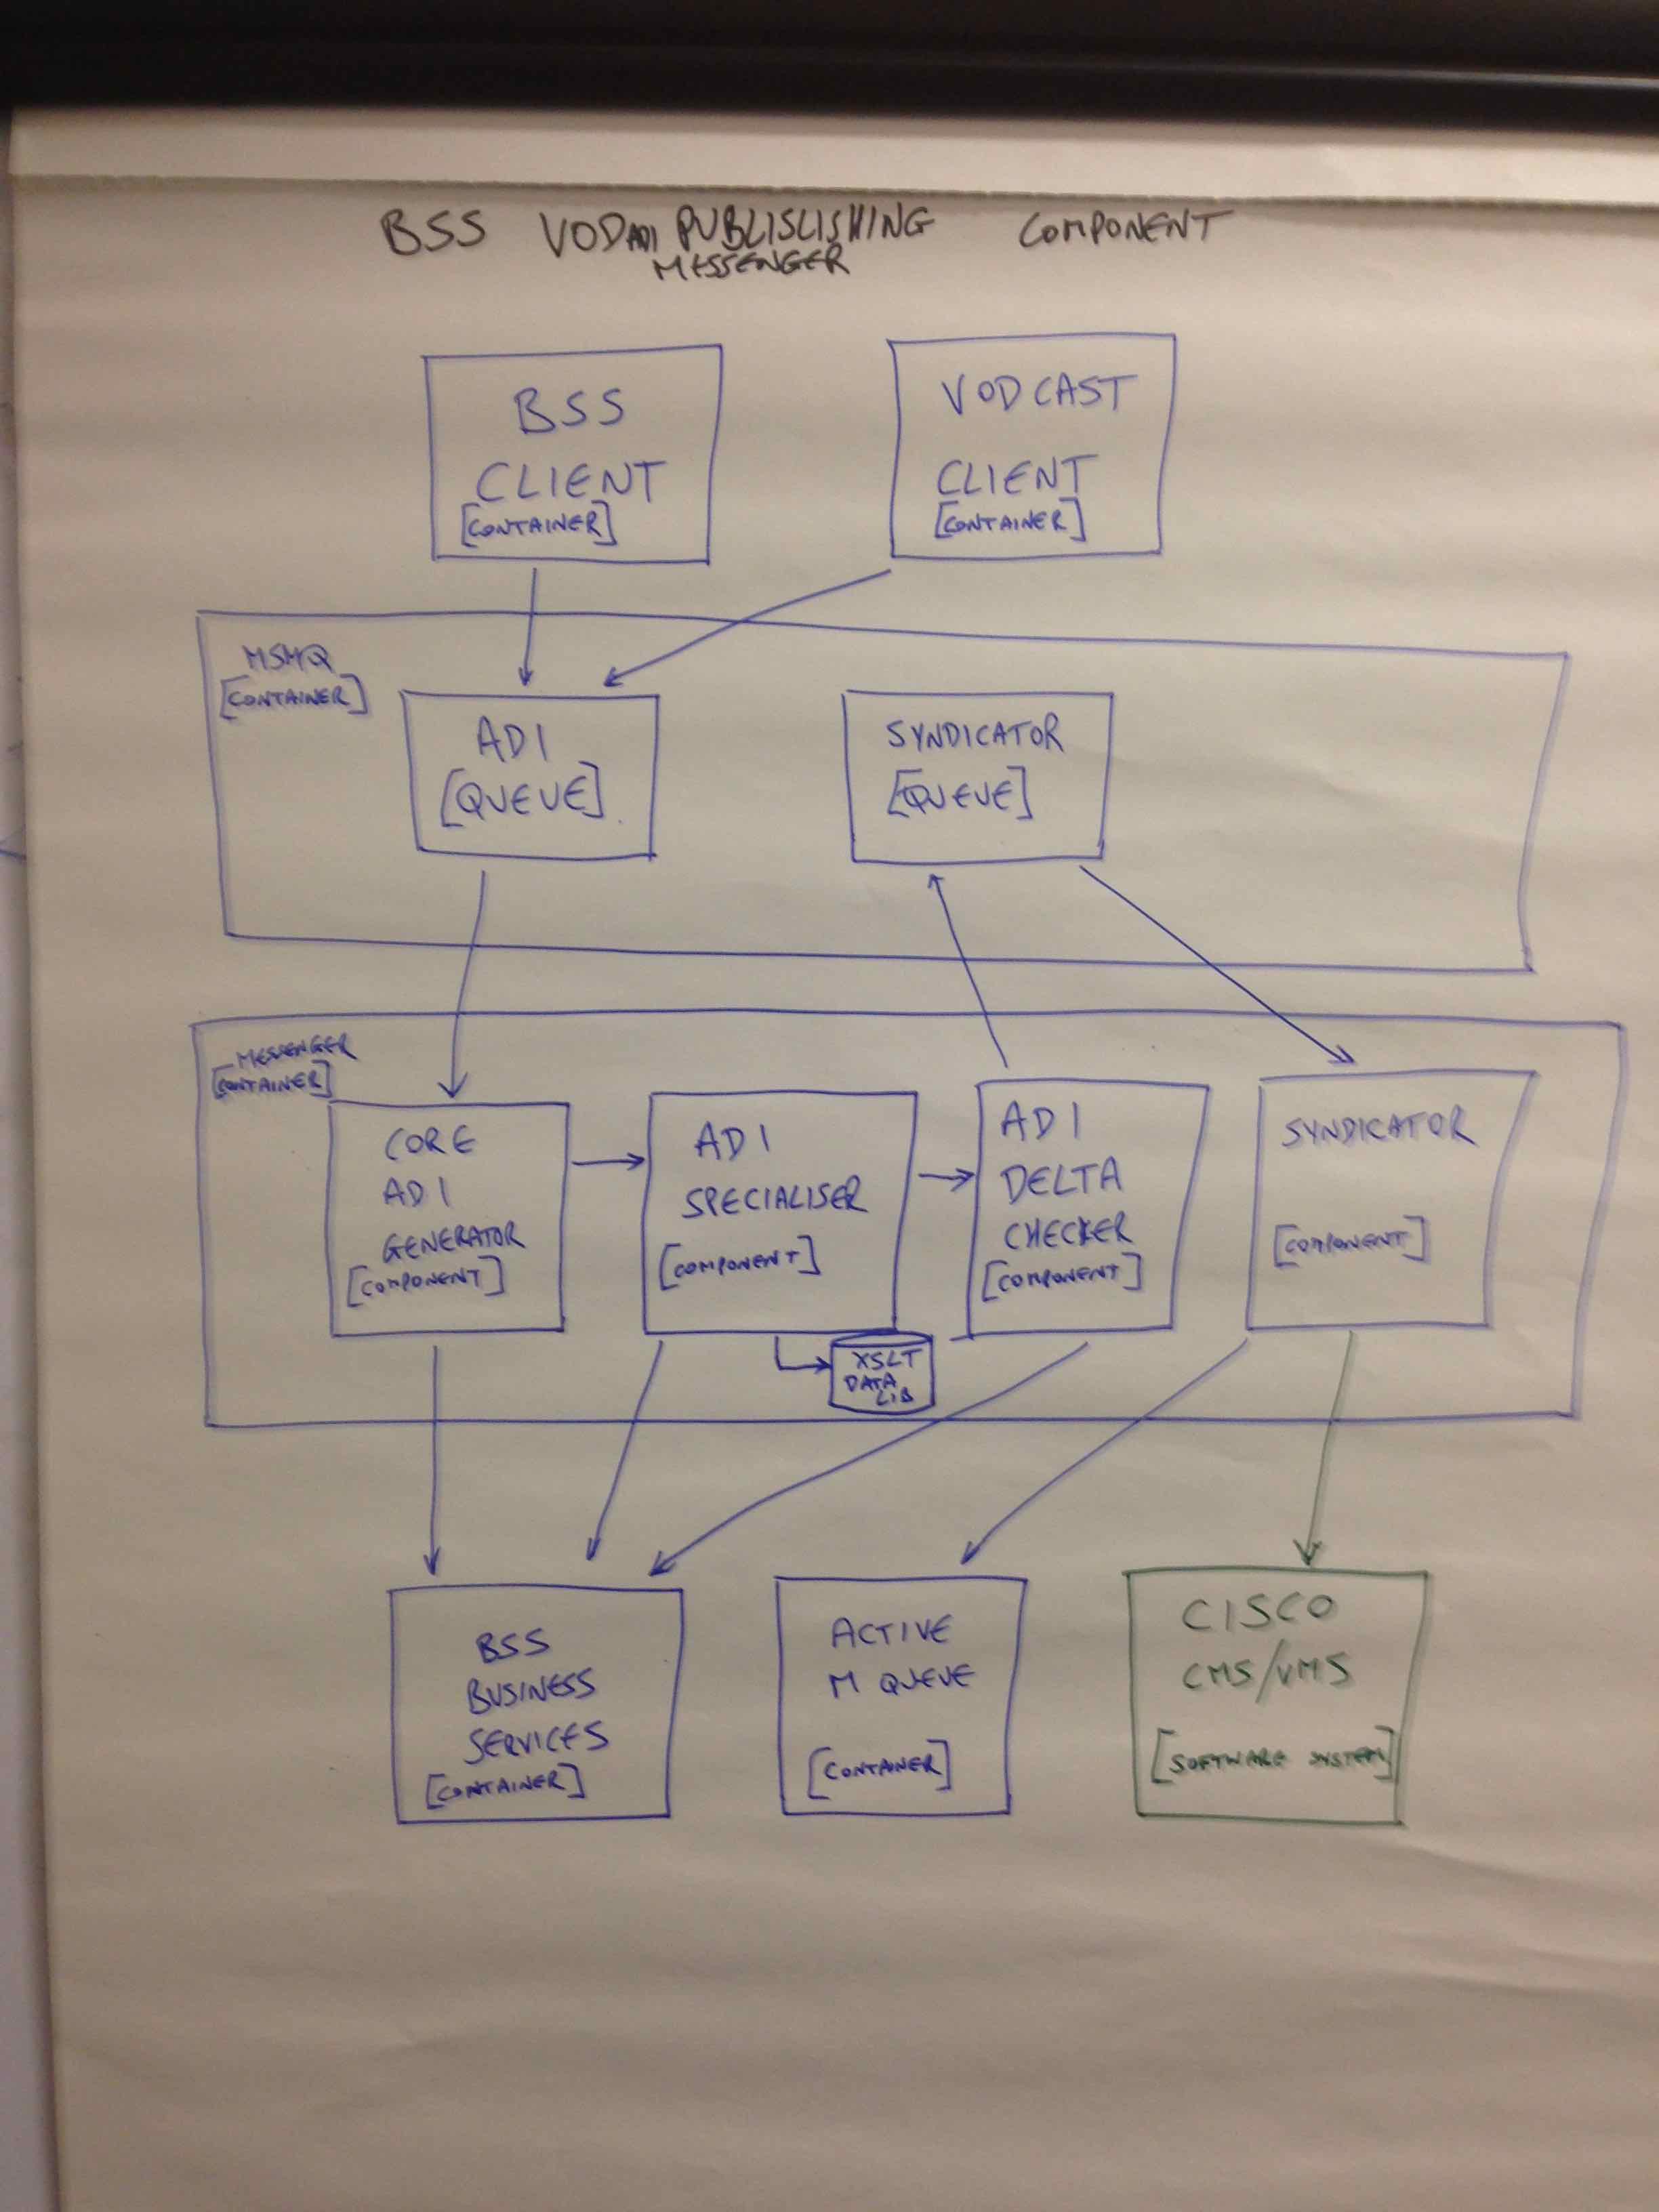 BSS VODADI PUBLISLISHING COMPONENT
MESSENGER
BSS
CLIENT
[CONTAINER]
VODCAST
CLIENT
[CONTAINER]
MSMQ
[CONTAINER]
ADI
[QUEUE]
SYNDICATOR
[QUEUE]
MESSENGER
[CONTAINER]
CORE
ADI
GENERATOR
[COMPONENT]
ADI
SPECIALISER
[COMPONENT]
XSLT
DATA
LIB
ADI
DELTA
CHECKER
[COMPONENT]
SYNDICATOR
[COMPONENT]
BSS
BUSINESS
SERVICES
[CONTAINER]
ACTIVE
M QUEUE
[CONTAINER]
CISCO
CMS/VMS
[SOFTWARE SYSTEM]